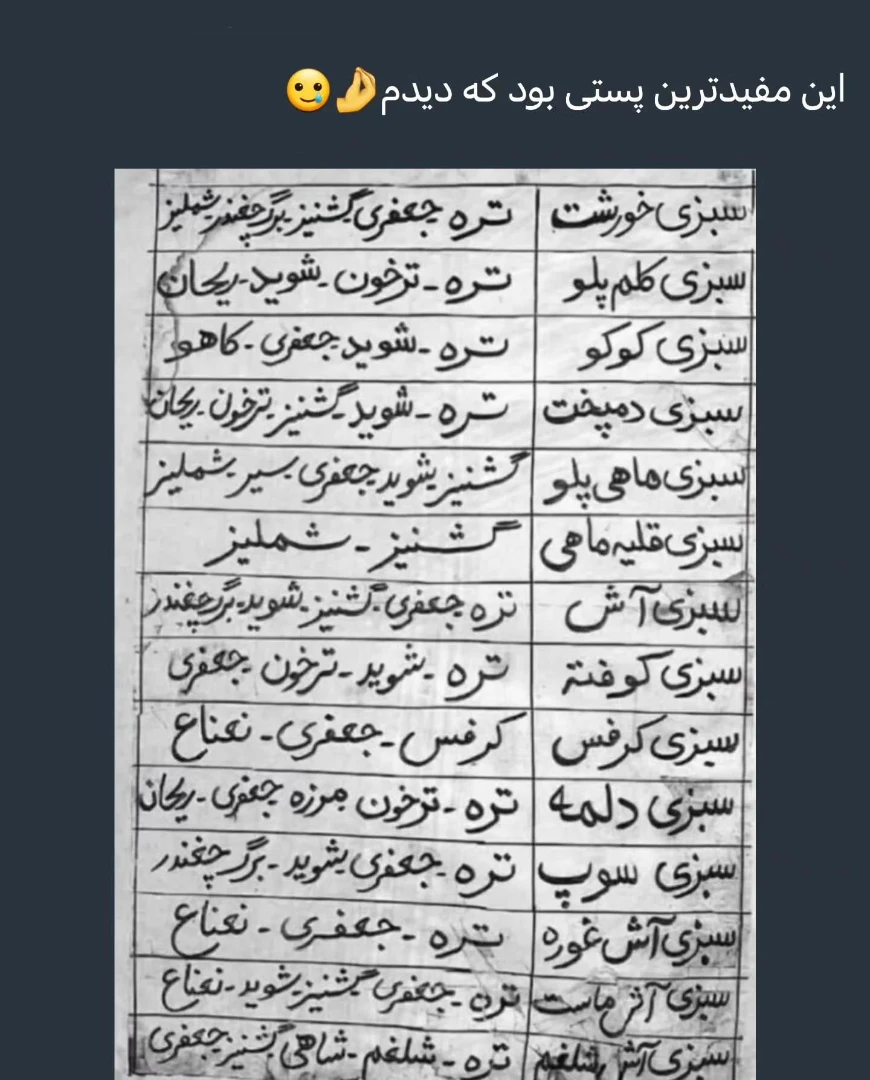 این مفیدترین پستی بود که دیدم🤌🥲
سبزی خورشت تره جعفری گشنیز-برگ چغندر-شملیز
سبزی کلم پلو تره - ترخون - شوید - ریحان
سبزی کوکو تره - شوید جعفری - کاهو
سبزی دمپخت تره - شوید گشنیز - ترخون - ریحان
سبزی ماهی پلو گشنیز شوید جعفری - سیر - شملیز
سبزی قلیه ماهی گشنیز - شملیز
سبزی آش تره جعفری - گشنیز - شوید - برگ چغندر
سبزی کوفته تره - شوید - ترخون جعفری
سبزی کرفس کرفس - جعفری - نعناع
سبزی دلمه تره - ترخون مرزه جعفری - ریحان
سبزی سوپ تره جعفری شوید - برگ چغندر
سبزی آش غوره تره - جعفری - نعناع
سبزی آش ماست تره - جعفری گشنیز شوید - نعناع
سبزی آش شلغم تره - شلغم - شاهی گشنیز جعفری